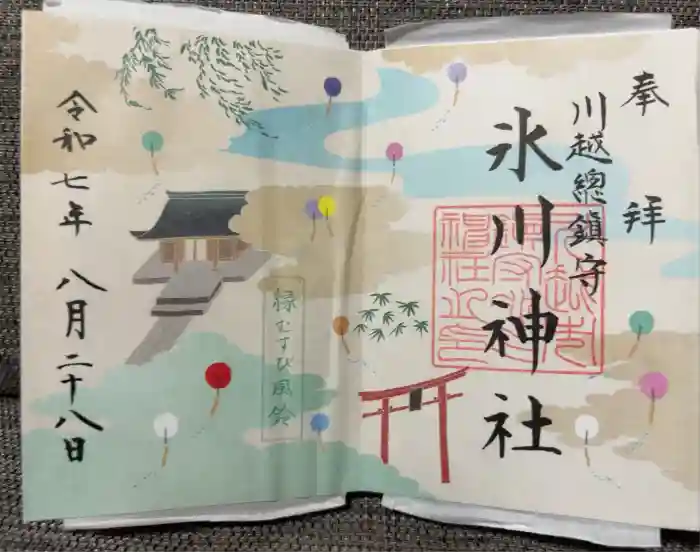 奉拝
川越總鎮守
氷川神社
縁むすび風鈴
令和七年八月二十八日